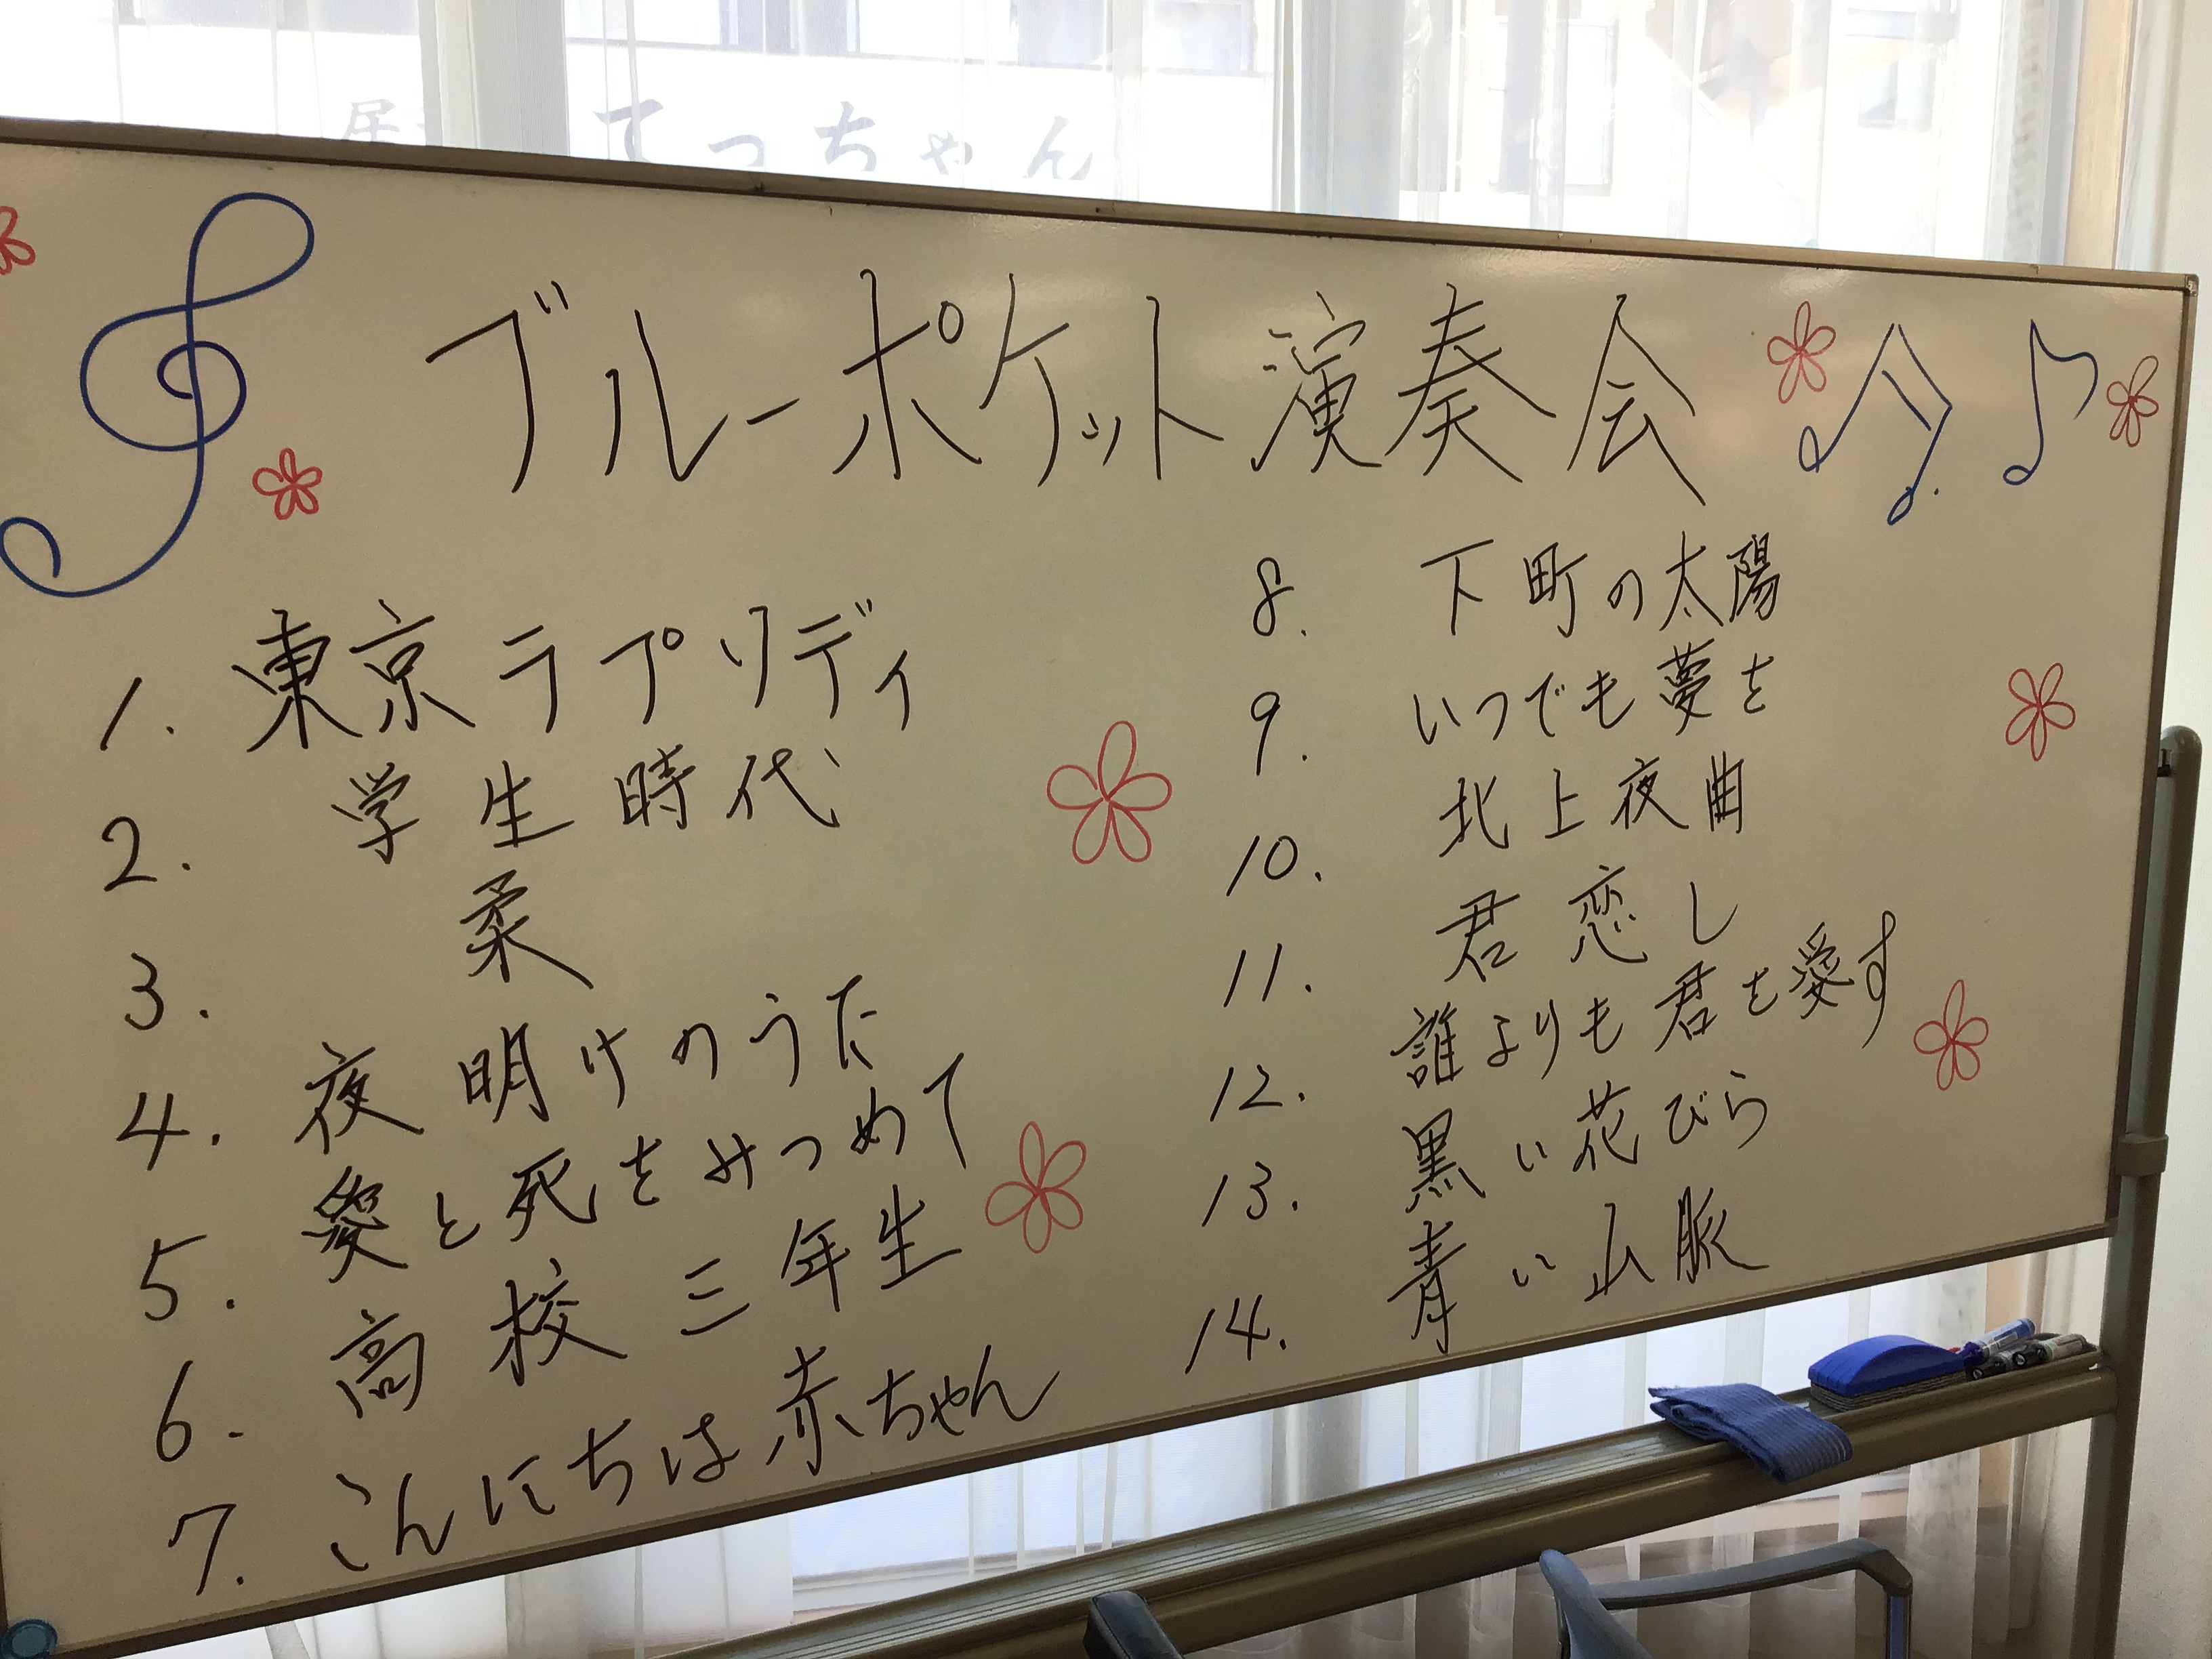 てっちゃん
ブルーポケット演奏会
1. 東京ラプリディ
2. 学生時代
3. 柔
4. 夜明けのうた
5. 愛と死をみつめて
6. 高校三年生
7. こんにちは赤ちゃん
8. 下町の太陽
9. いつでも夢を
10. 北上夜曲
11. 君恋し
12. 誰よりも君を愛す
13. 黒い花びら
14. 青い山脈